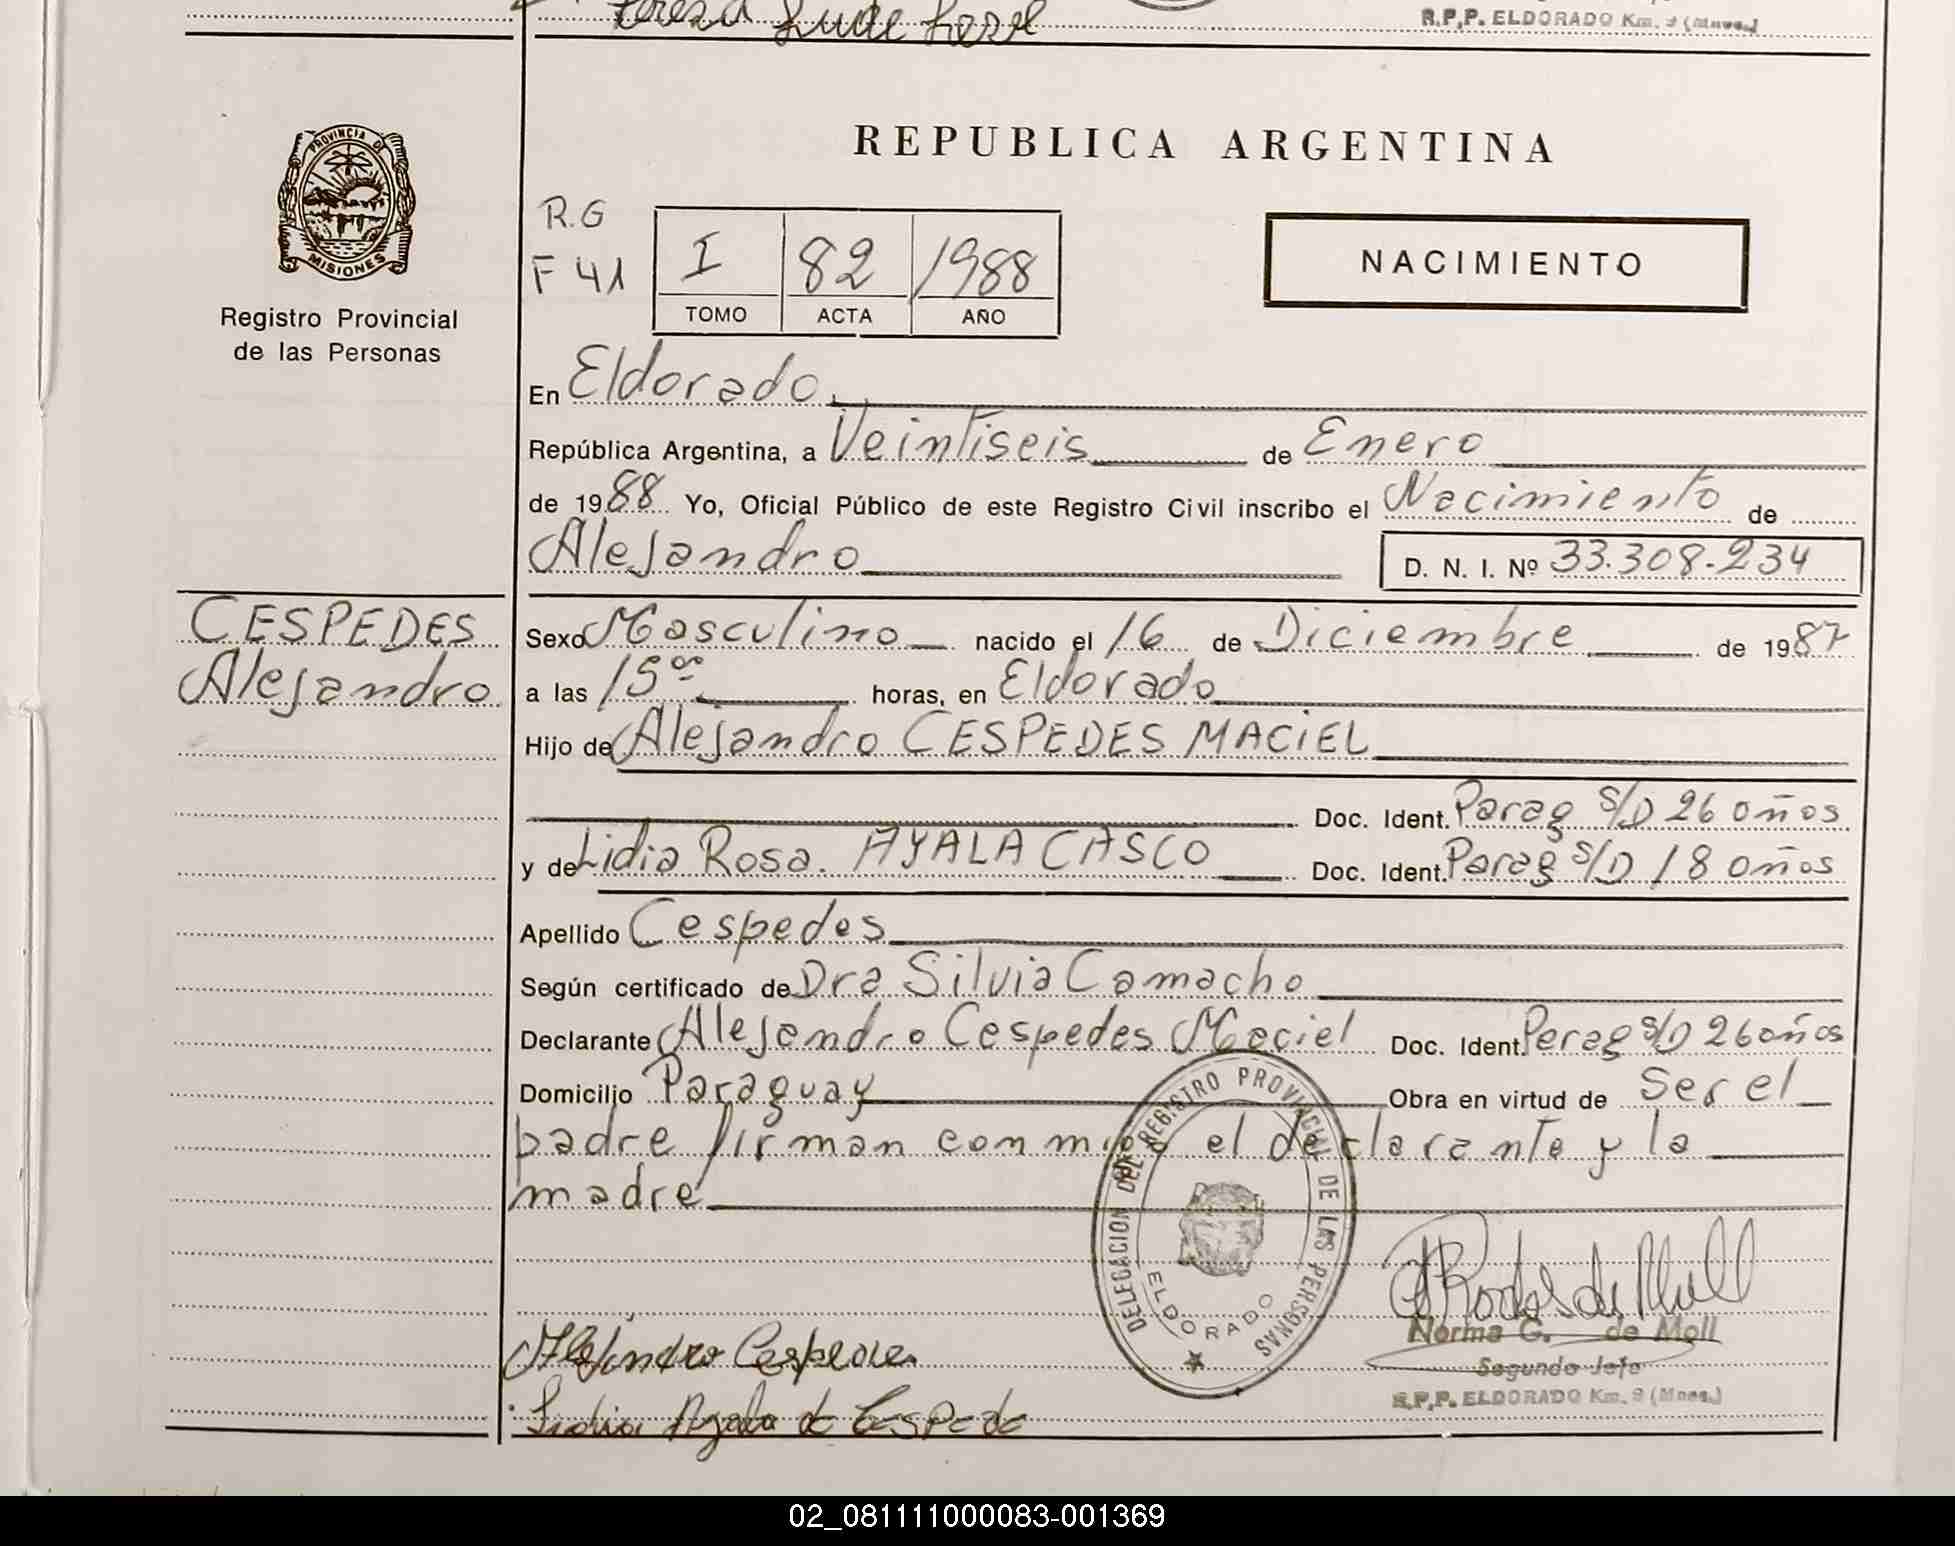 Teresa
R.P.P. ELDORADO Km. 9 (Mnes.)
PROVINCIA DE
MISIONES
Registro Provincial
de las Personas
REPUBLICA ARGENTINA
R.G
F 41
I 82 1988
TOMO ACTA AÑO
NACIMIENTO
En Eldorado.
República Argentina, a Veintiseis de Enero
de 1988 Yo, Oficial Público de este Registro Civil inscribo el Nacimiento de
Alejandro D. N. I. Nº 33.308.234
CESPEDES
Alejandro
Sexo Masculino nacido el 16 de Diciembre de 1987
a las 15 00 horas, en Eldorado
Hijo de Alejandro CESPEDES MACIEL
Doc. Ident. Parag S/D 26 años
y de Lidia Rosa. AYALA CASCO Doc. Ident. Parag S/D 18 años
Apellido Cespedes
Según certificado de Dra Silvia Camacho
Declarante Alejandro Cespedes Maciel Doc. Ident. Parag S/D 26 años
Domicilio Paraguay Obra en virtud de ser el
padre firman conmigo el declarante y la
madre
DELEGACION DEL REGISTRO PROVINCIAL DE LAS PERSONAS
ELDORADO
Alejandro Cespedes
Lidia Ayala de Cespede
Norma G. de Moll
Segundo Jefe
R.P.P. ELDORADO Km. 9 (Mnes.)
02_081111000083-001369